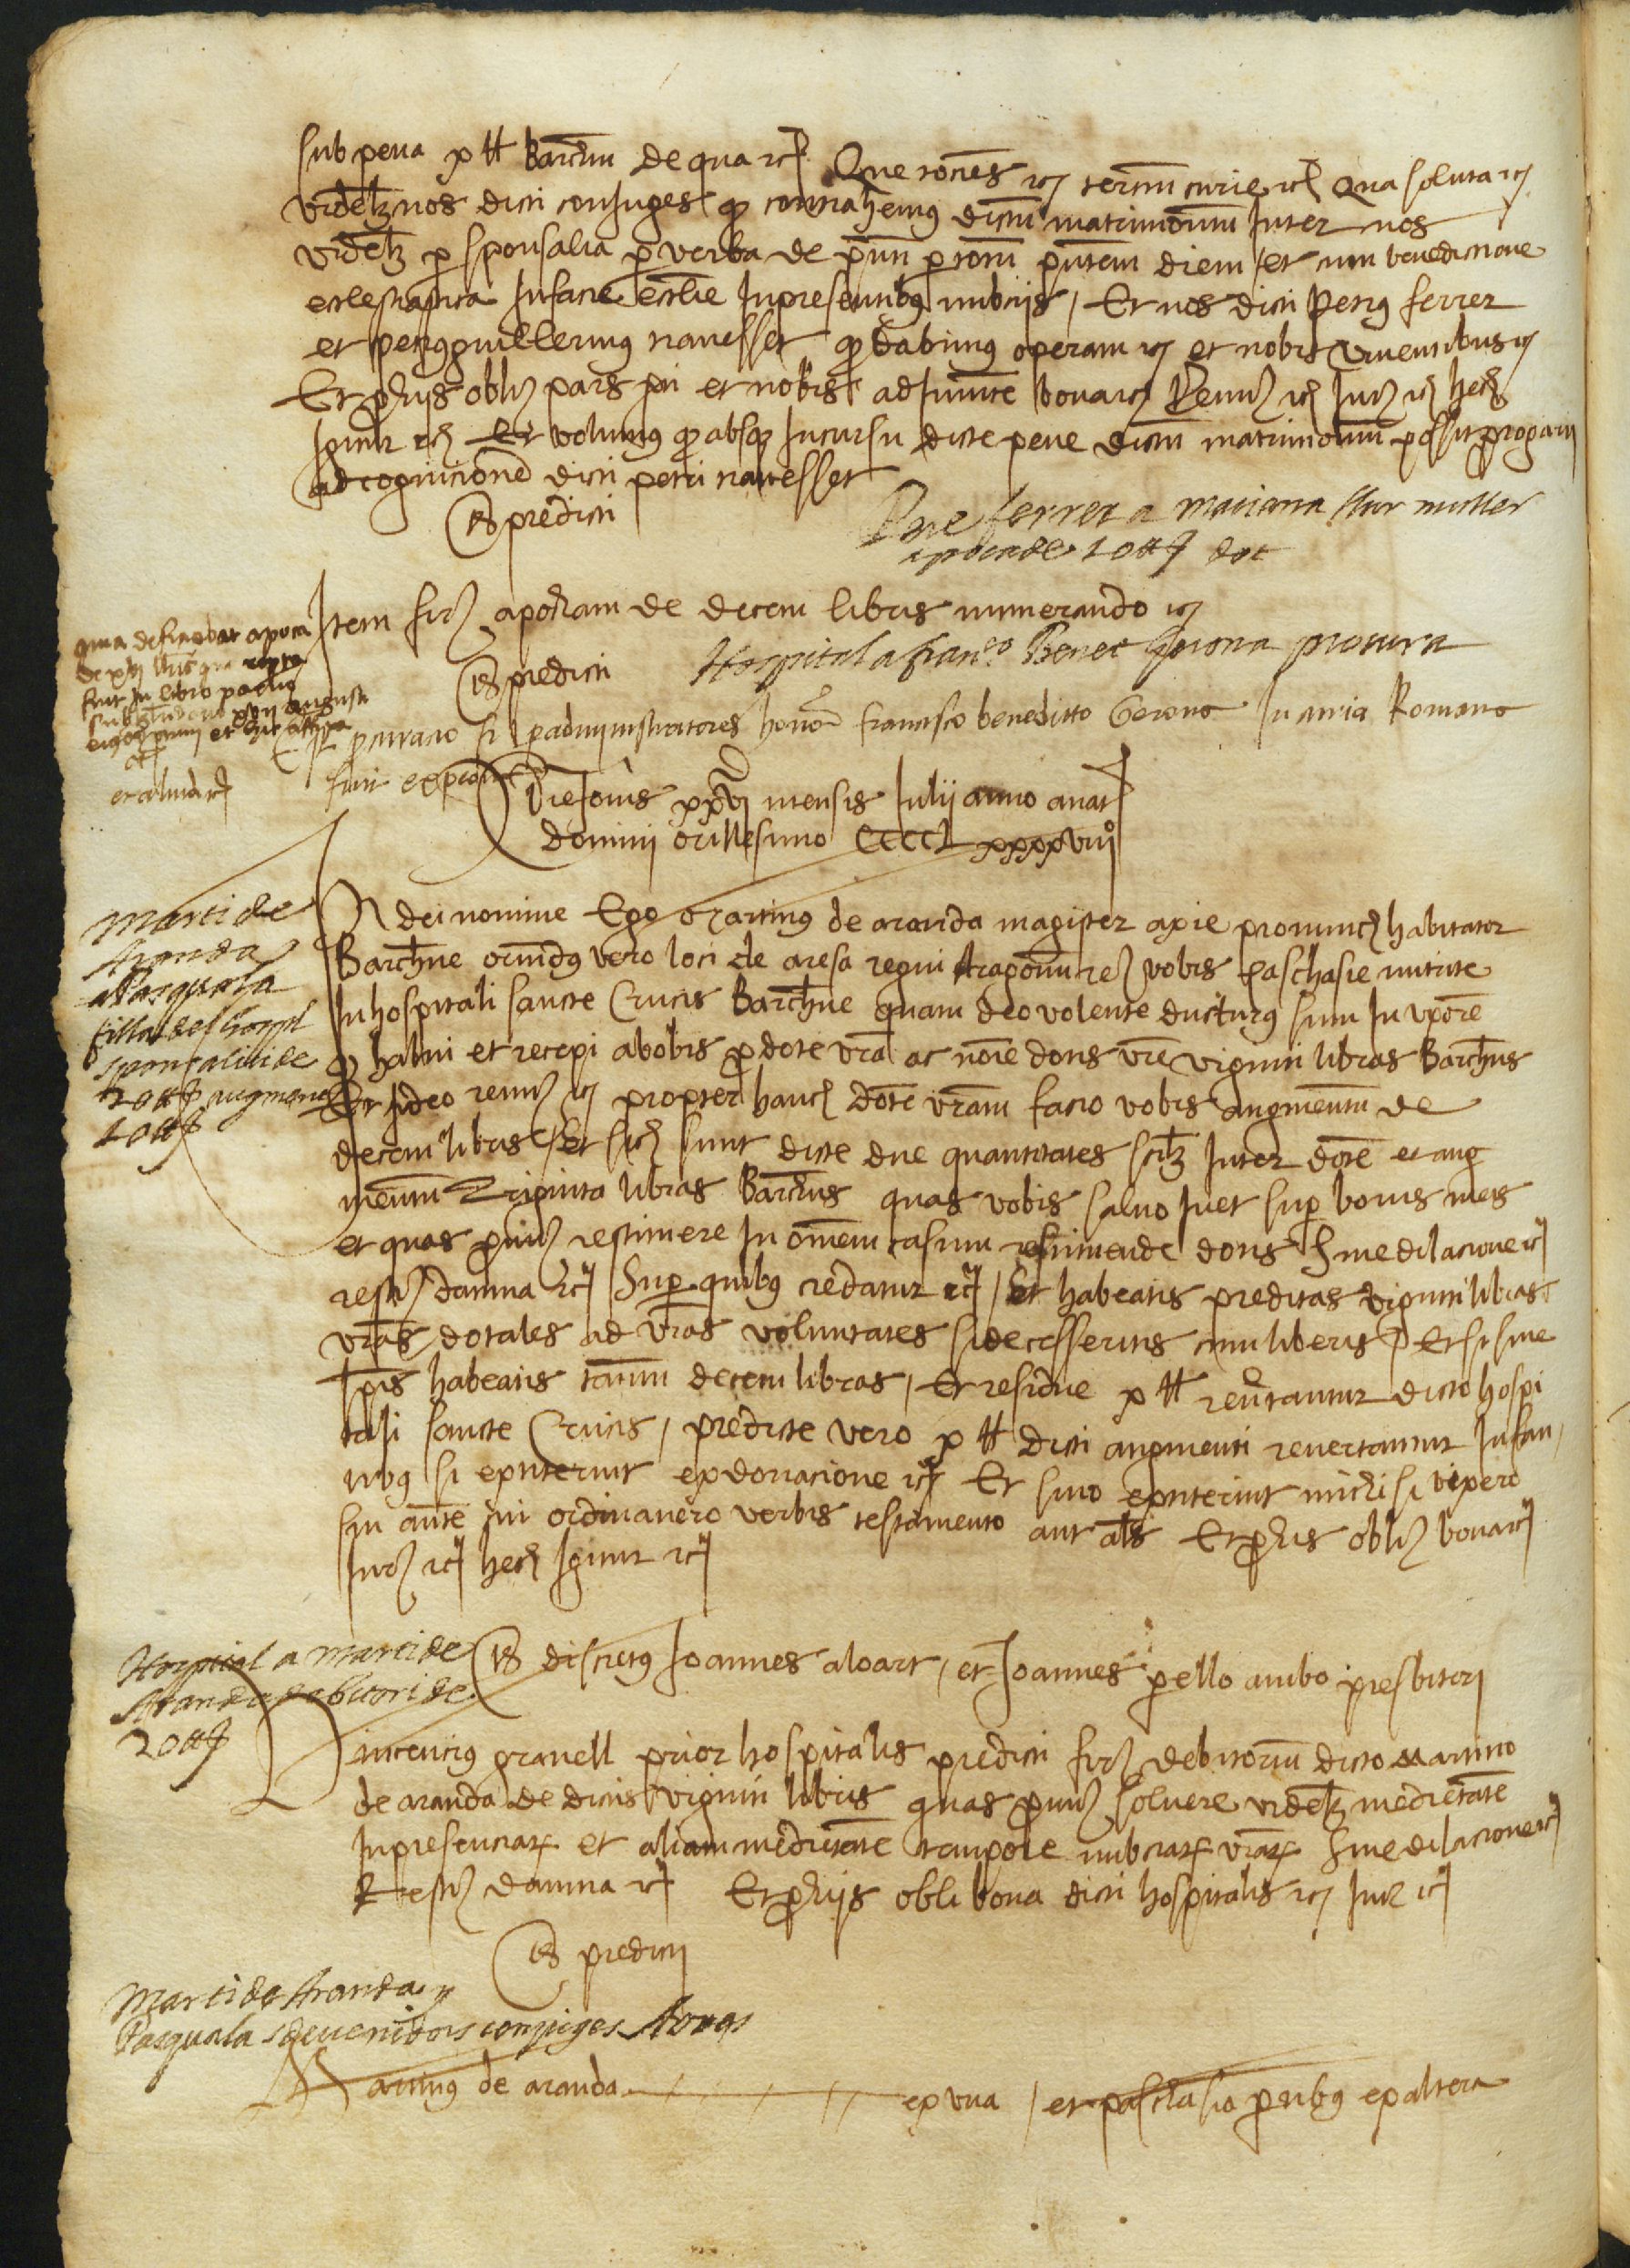 sub pena x ℔ Barchnn de qua etc Que tociens etc terciun curie etc Qua soluta etc
videlz nos dicti coniuges q contrahemus dictu matrimoniu Inter nos
videlz p sponsalia p verba de pnti p totu pntem diem et cum benedictione
eclesiastica In facie eclie In presentibus nubciis / Et nos dicti Petrus ferrer
et petrus guillermus navesset q dabimus operam etc et nobis viventibus etc
Et p hiis oblig pars pti et nobis adiuncte bona etc Renun etc Iur etc hec
Igitur etc Et volumus q absq Incursu dicte pene dictu matrimoniu possit prrogari
ad cognicione dicti petri navesset
Ts predicti
Pere ferrer a mariana sur muller
apocade 10 ℔ dot
Item fir apocham de decem libris numerando etc
Ts predicti
Hospital a franco Benet Gerona procura
procuracio p administratores honor francisco beneditto Gerona In curia Romana
fuit
qma defirebat apoca
fuit In libro
et alius etc
Die Iovis xxvj mensis Iulii anno a nat
domini Millesimo CCCCL xxxxviiij
marti de
Aranda
a Pasquala
filla del hospl
sponsalici de
20 ℔ augment
10 ℔
IN dei nomine Ego Martinus de aranda magister axie pronunc habitator
Barchne oriundus vero loci de aresa regni Aragonum etc vobis paschasie nutrite
In hospitali sancte Crucis Barchne quam deo volente ducturus sum In uxore
q habui et recepi a vobis p dote vra ac noie dotis vre viginti libras Barchns
Et Ideo renun etc propter hanc dote vram facio vobis augmentu de
decem libris / Et sich sunt dicte due quantitates scilz Inter dote et aug
mentu Triginta libras Barchns quas vobis salvo Iuet sup bonis meis
et quas pmit restituere In omem casum restituende dotis Sine dilacione etc
restit damna etc Super quibus credatur etc / Et habeatis predictas viginti libras
vras dotales ad vras voluntates si decesseritis cum liberis Et si sine
ipis habeatis tantum decem libras / Et residue x ℔ revertantur dicto hospi
tali sancte Crucis / predicte vero x ℔ dicti augmenti revertantur Infan
tibus si extiterint ex donacione etc Et si no extiterint michi si vixero
sin aute cui ordinavero verbis testamento aut als Et p hiis oblig bona etc
Iur etc hec Igitur etc
Hospital a marti de
Aranda debitori de
20 ℔
Ts discretus Ioannes aloart / et Ioannes pello ambo presbiteri
Vincencius granell prior hospitalis predicti fir debitoriu dicto Martino
de aranda de dictis viginti libris quas pmit solvere videlz medietate
In presenciar et aliam medietate tempore nubciar vrar Sine dilacione etc
Restit damna etc Et p hiis obli bona dicti hospitalis etc Iur etc
Ts predicti
Marti de Aranda y
Pasquala sdevenidors coniuges
Martinus de aranda ex una / et paschasia ptibus ex altera